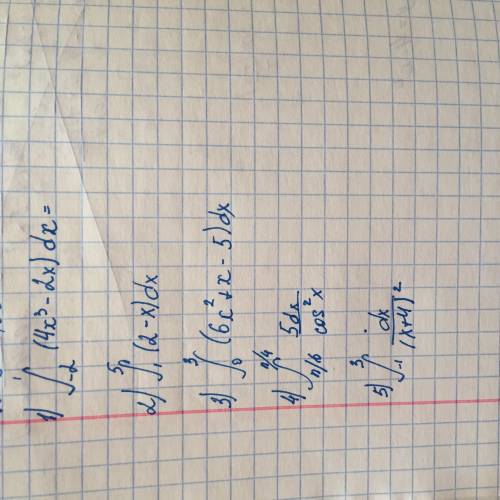 1) ∫₋₂ (4x³ - 2x) dx =
2) ∫₁⁵ (2 - x) dx
3) ∫₀³ (6x² + x - 5) dx
4) ∫_{π/6}^{π/4} 5dx / cos² x
5) ∫₋₁³ dx / (x+4)²